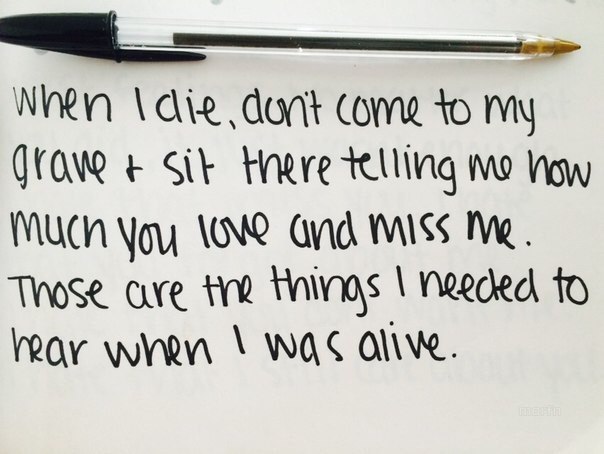 When I die, don't come to my
grave + sit there telling me how
much you love and miss me.
Those are the things I needed to
hear when I was alive.